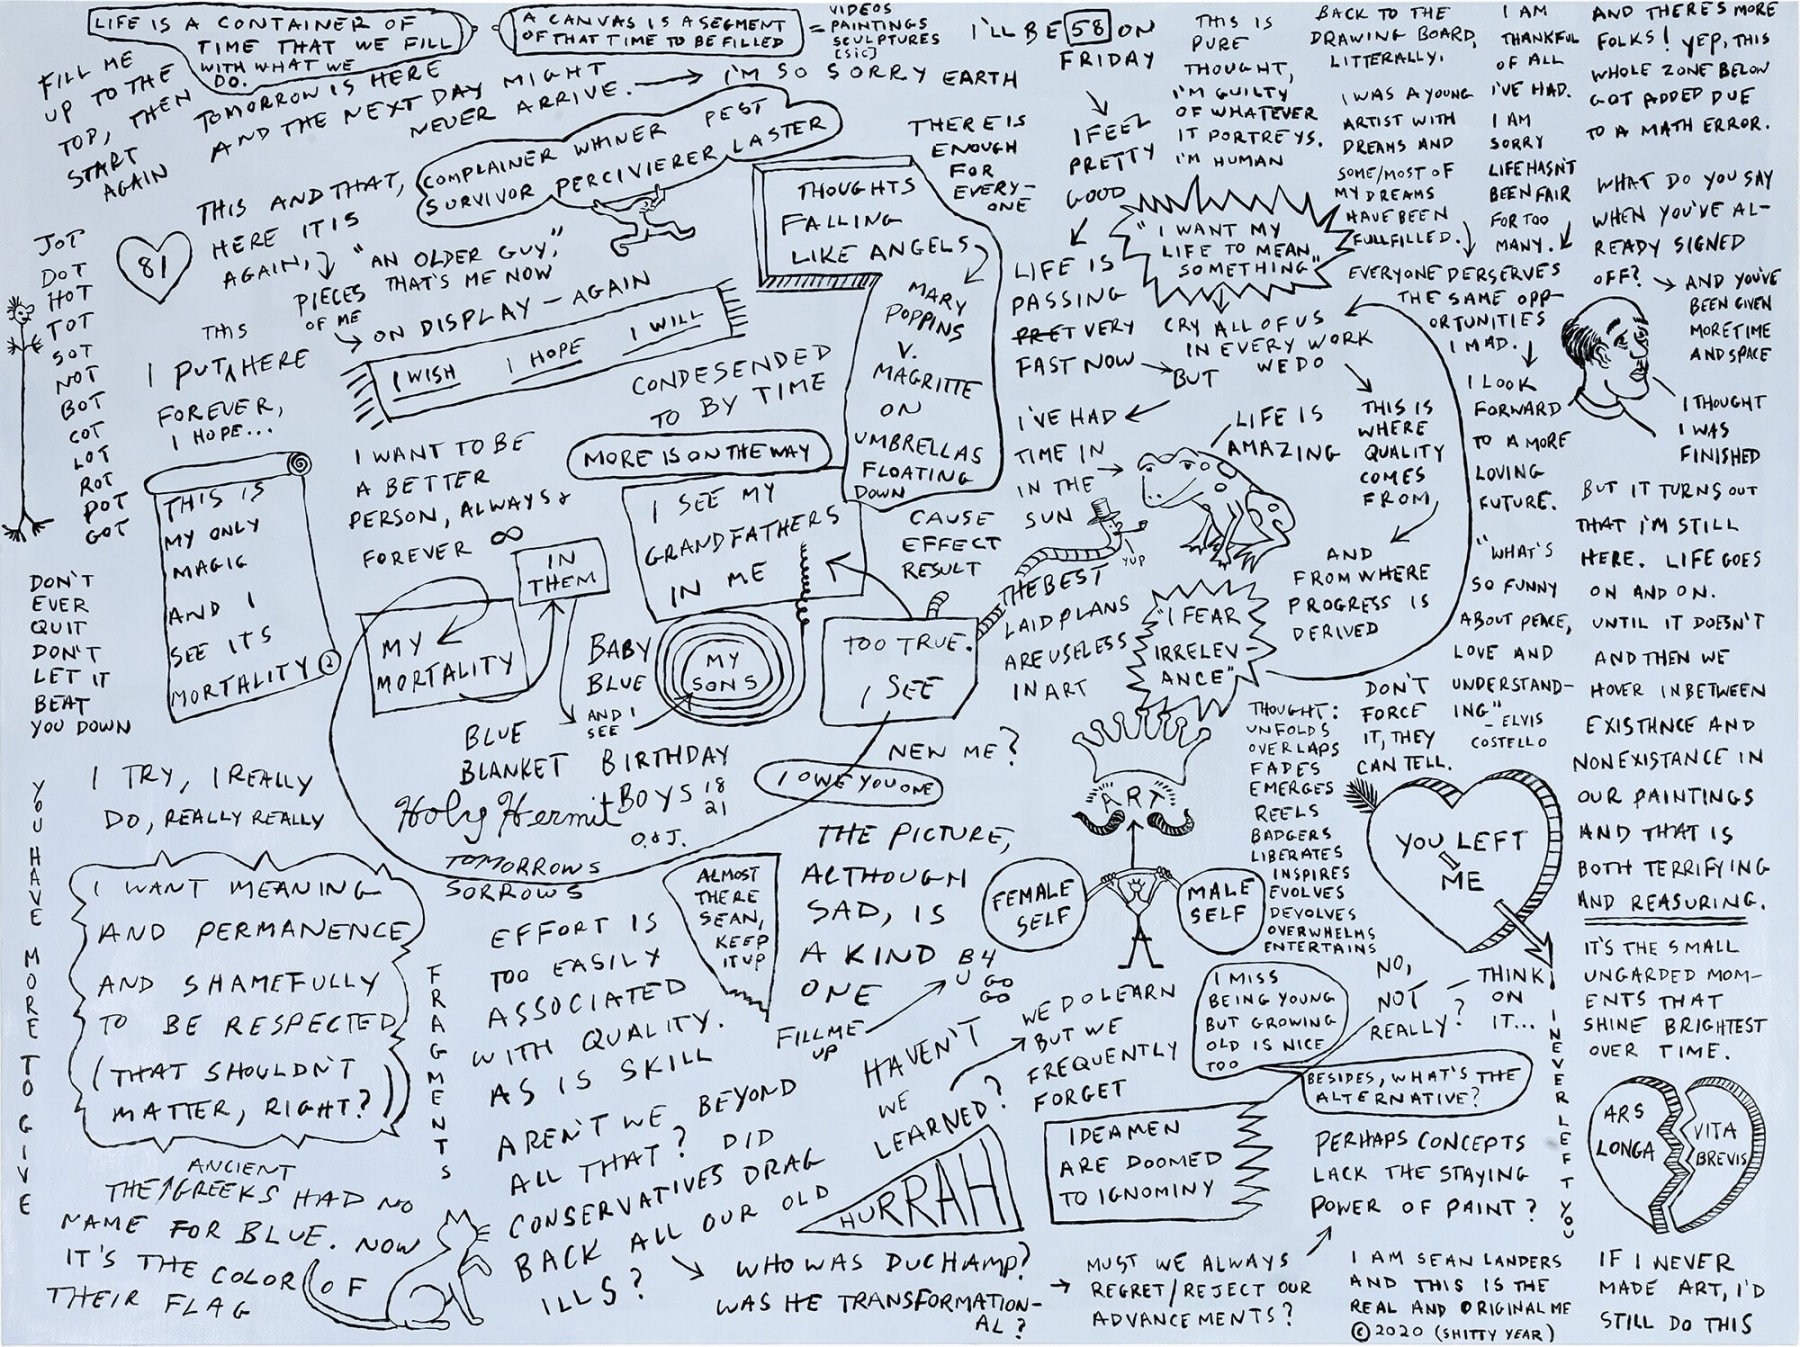 LIFE IS A CONTAINER OF
TIME THAT WE FILL
WITH WHAT WE
DO.
A CANVAS IS A SEGMENT
OF THAT TIME TO BE FILLED
= VIDEOS
PAINTINGS
SCULPTURES
[SIC]
FILL ME
UP TO THE
TOP, THEN
START
AGAIN
TOMORROW IS HERE
AND THE NEXT DAY MIGHT
NEVER ARRIVE.
I'M SO SORRY EARTH
I'LL BE 58 ON
FRIDAY
I FEEL
PRETTY
GOOD
LIFE IS
PASSING
PRET VERY
FAST NOW
BUT
I'VE HAD
TIME IN
IN THE
SUN
THIS IS
PURE
THOUGHT,
I'M GUILTY
OF WHATEVER
IT PORTREYS.
I'M HUMAN
BACK TO THE
DRAWING BOARD,
LITTERALLY.
I WAS A YOUNG
ARTIST WITH
DREAMS AND
SOME/MOST OF
MY DREAMS
HAVE BEEN
FULLFILLED.
I AM
THANKFUL
OF ALL
I'VE HAD.
I AM
SORRY
LIFE HASN'T
BEEN FAIR
FOR TOO
MANY.
EVERYONE DERSERVES
THE SAME OPP-
ORTUNITIES
I MAD.
I LOOK
FORWARD
TO A MORE
LOVING
FUTURE.
"WHAT'S
SO FUNNY
ABOUT PEACE,
LOVE AND
UNDERSTAND-
ING"
- ELVIS
COSTELLO
AND THERES MORE
FOLKS! YEP, THIS
WHOLE ZONE BELOW
GOT ADDED DUE
TO A MATH ERROR.
WHAT DO YOU SAY
WHEN YOU'VE AL-
READY SIGNED
OFF?
AND YOU'VE
BEEN GIVEN
MORE TIME
AND SPACE
I THOUGHT
I WAS
FINISHED
BUT IT TURNS OUT
THAT I'M STILL
HERE. LIFE GOES
ON AND ON.
UNTIL IT DOESN'T
AND THEN WE
HOVER INBETWEEN
EXISTHNCE AND
NONEXISTANCE IN
OUR PAINTINGS
AND THAT IS
BOTH TERRIFYING
AND REASURING.
IT'S THE SMALL
UNGARDED MOM-
ENTS THAT
SHINE BRIGHTEST
OVER TIME.
ARS
LONGA
VITA
BREVIS
IF I NEVER
MADE ART, I'D
STILL DO THIS
COMPLAINER WHINER PEST
SURVIVOR PERCIVIERER LASTER
THERE IS
ENOUGH
FOR
EVERY-
ONE
"I WANT MY
LIFE TO MEAN
SOMETHING"
CRY ALL OF US
IN EVERY WORK
WE DO
THIS IS
WHERE
QUALITY
COMES
FROM,
AND
FROM WHERE
PROGRESS IS
DERIVED
LIFE IS
AMAZING
YUP
THIS AND THAT,
HERE IT IS
AGAIN,
PIECES
OF ME
"AN OLDER GUY,"
THAT'S ME NOW
ON DISPLAY - AGAIN
I WISH
I HOPE
I WILL
THOUGHTS
FALLING
LIKE ANGELS
MARY
POPPINS
V.
MAGRITTE
ON
UMBRELLAS
FLOATING
DOWN
CONDESENDED
TO BY TIME
MORE IS ON THE WAY
81
JOT
DOT
HOT
TOT
SOT
NOT
BOT
COT
LOT
ROT
POT
GOT
I PUT THIS HERE
FOREVER,
I HOPE...
THIS IS
MY ONLY
MAGIC
AND I
SEE ITS
MORTALITY
DON'T
EVER
QUIT
DON'T
LET IT
BEAT
YOU DOWN
I WANT TO BE
A BETTER
PERSON, ALWAYS &
FOREVER ∞
I SEE MY
GRANDFATHERS
IN ME
IN
THEM
MY
MORTALITY
BABY
BLUE
AND I
SEE
MY
SONS
TOO TRUE.
I SEE
CAUSE
EFFECT
RESULT
THE BEST
LAID PLANS
ARE USELESS
IN ART
"I FEAR
IRRELEV-
ANCE"
BLUE
BLANKET BIRTHDAY
BOYS 18
21
O. & J.
Holy Hermit
TOMORROWS
SORROWS
NEW ME?
I OWE YOU ONE
YOU HAVE MORE TO GIVE
I TRY, I REALLY
DO, REALLY REALLY
I WANT MEANING
AND PERMANENCE
AND SHAMEFULLY
TO BE RESPECTED
(THAT SHOULDN'T
MATTER, RIGHT?)
FRAGMENTS
THE ANCIENT GREEKS HAD NO
NAME FOR BLUE. NOW
IT'S THE COLOR OF
THEIR FLAG
EFFORT IS
TOO EASILY
ASSOCIATED
WITH QUALITY.
AS IS SKILL
AREN'T WE BEYOND
ALL THAT? DID
CONSERVATIVES DRAG
BACK ALL OUR OLD
ILLS?
ALMOST
THERE
SEAN,
KEEP
IT UP
THE PICTURE,
ALTHOUGH
SAD, IS
A KIND
ONE
FILL ME
UP
B4
U GO
GO
HAVEN'T
WE
LEARNED?
WE DO LEARN
BUT WE
FREQUENTLY
FORGET
HURRAH
WHO WAS DUCHAMP?
WAS HE TRANSFORMATION-
AL?
MUST WE ALWAYS
REGRET/REJECT OUR
ADVANCEMENTS?
IDEAMEN
ARE DOOMED
TO IGNOMINY
PERHAPS CONCEPTS
LACK THE STAYING
POWER OF PAINT?
I AM SEAN LANDERS
AND THIS IS THE
REAL AND ORIGINAL ME
© 2020 (SHITTY YEAR)
ART
FEMALE
SELF
MALE
SELF
THOUGHT:
UNFOLDS
OVERLAPS
FADES
EMERGES
REELS
BADGERS
LIBERATES
INSPIRES
EVOLVES
DEVOLVES
OVERWHELMS
ENTERTAINS
DON'T
FORCE
IT, THEY
CAN TELL.
YOU LEFT
ME
I NEVER LEFT YOU
I MISS
BEING YOUNG
BUT GROWING
OLD IS NICE
TOO
NO,
NOT
REALLY?
THINK
ON
IT...
BESIDES, WHAT'S THE
ALTERNATIVE?